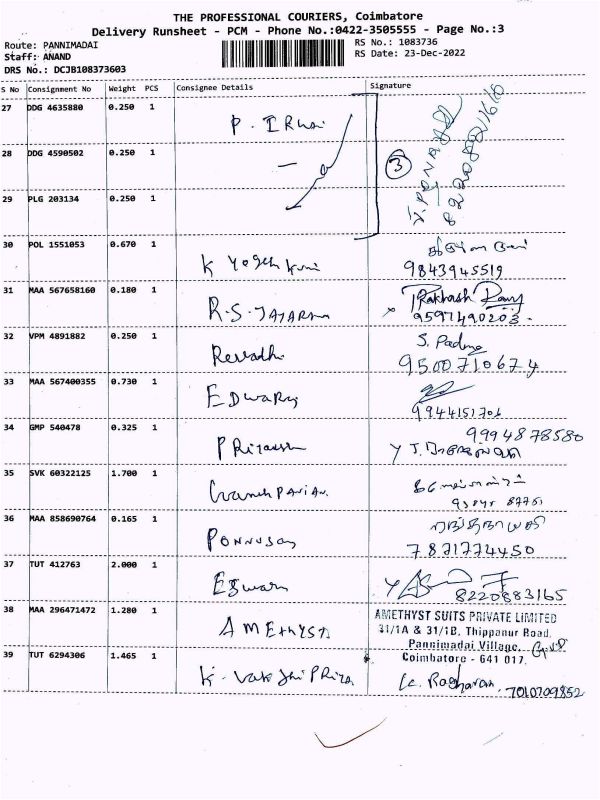 THE PROFESSIONAL COURIERS, Coimbatore
Delivery Runsheet - PCM - Phone No.:0422-3505555 - Page No.:3
Route: PANNIMADAI RS No.: 1083736
Staff: ANAND RS Date: 23-Dec-2022
DRS No.: DCJB108373603
S No Consignment No Weight PCS Consignee Details Signature
27 DDG 4635880 0.250 1
28 DDG 4590502 0.250 1
3
29 PLG 203134 0.250 1
30 POL 1551053 0.670 1 K
9843945519
31 MAA 567658160 0.180 1 R.S. JAJARAM
9597490203
32 VPM 4891882 0.250 1 Revathi S. Padma
9500710674
33 MAA 567400355 0.730 1 EDWARD
9944151701
34 GMP 540478 0.325 1 9994878580
35 SVK 60322125 1.700 1
36 MAA 858690764 0.165 1 PONNUSAMY
7871774450
37 TUT 412763 2.000 1 Eswari
8220883165
38 MAA 296471472 1.280 1 AMETHYST AMETHYST SUITS PRIVATE LIMITED
31/1A & 31/1B, Thippanur Road,
Pannimadai Village,
Coimbatore - 641 017.
39 TUT 6294306 1.465 1 K.
7010709852